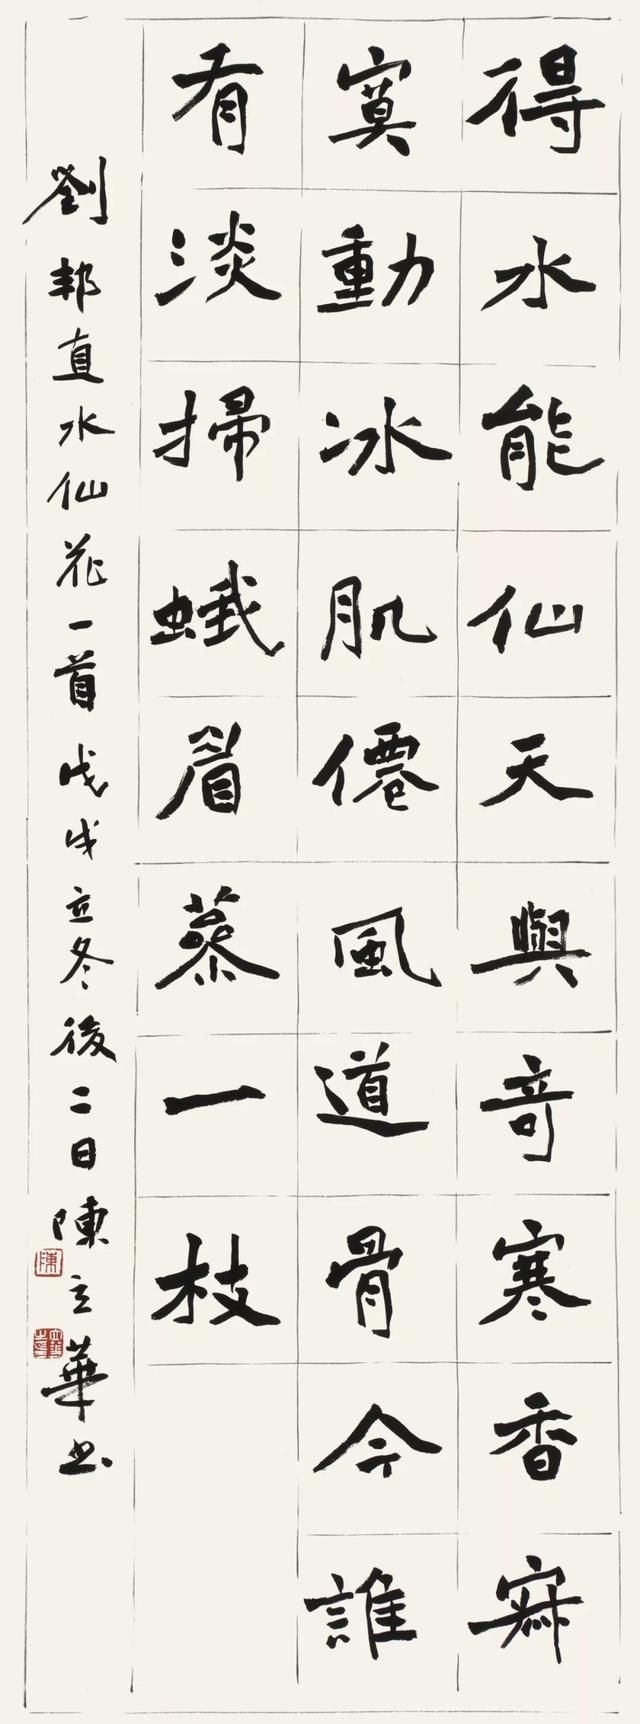 得水能仙天與奇寒香寂
寞動冰肌僊風道骨今誰
有淡掃蛾眉蔘一枝
劉邦直水仙花一首戊戌立冬後二日陳立華書
陳